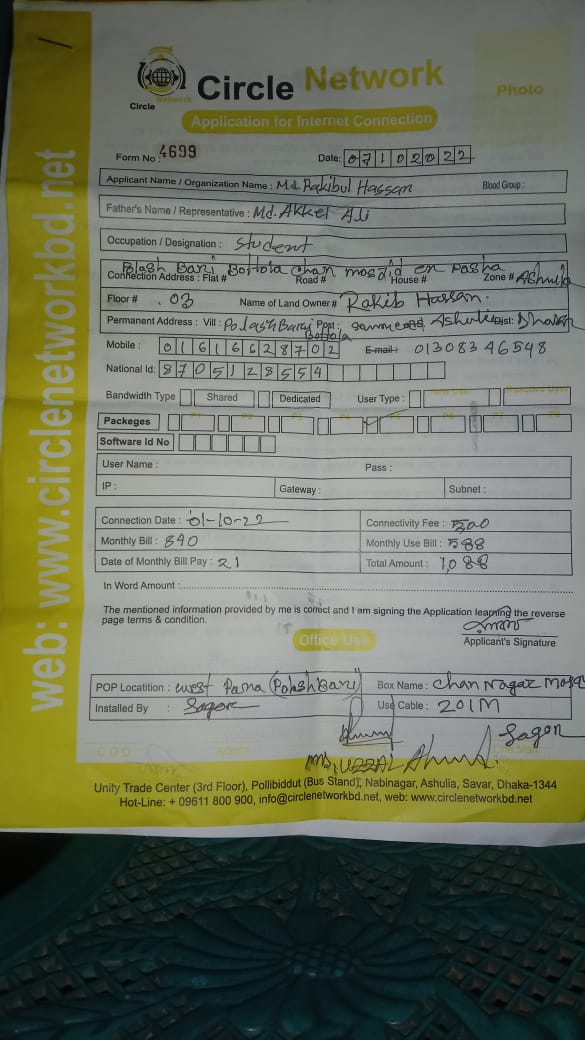 Circle Network
Circle Network
Photo
Application for Internet Connection
Form No : 4699
Date: 07102022
Applicant Name / Organization Name : Md. Rakibul Hassan Blood Group :
Father's Name / Representative : Md. Akkel Ali
Occupation / Designation : Student
Polash Bari Bottola Chan mosdid en pasha
Connection Address : Flat # Road # House # Zone # Ashulia
Floor # . 03 Name of Land Owner # Rakib Hassan.
Permanent Address : Vill : Polash Bari Post : Ashulia Dist: Dhaka
Bottola
Mobile : 01616628702 E-mail : 01308346548
National Id: 8705128554
Bandwidth Type Shared Dedicated User Type :
Packeges
Software Id No
User Name : Pass :
IP : Gateway : Subnet :
Connection Date : 01-10-22 Connectivity Fee : 500
Monthly Bill : 840 Monthly Use Bill : 588
Date of Monthly Bill Pay : 21 Total Amount : 1,088
In Word Amount :
The mentioned information provided by me is correct and I am signing the Application learning the reverse
page terms & condition.
Applicant's Signature
Office Use
POP Locatition : west Para (Polash Bari) Box Name : Chan Nagar Mosq
Installed By : Sagor Use Cable : 201M
Sagor
C O O Admin
Md. UZZAL
Unity Trade Center (3rd Floor), Pollibiddut (Bus Stand), Nabinagar, Ashulia, Savar, Dhaka-1344
Hot-Line: + 09611 800 900, info@circlenetworkbd.net, web: www.circlenetworkbd.net
web: www.circlenetworkbd.net